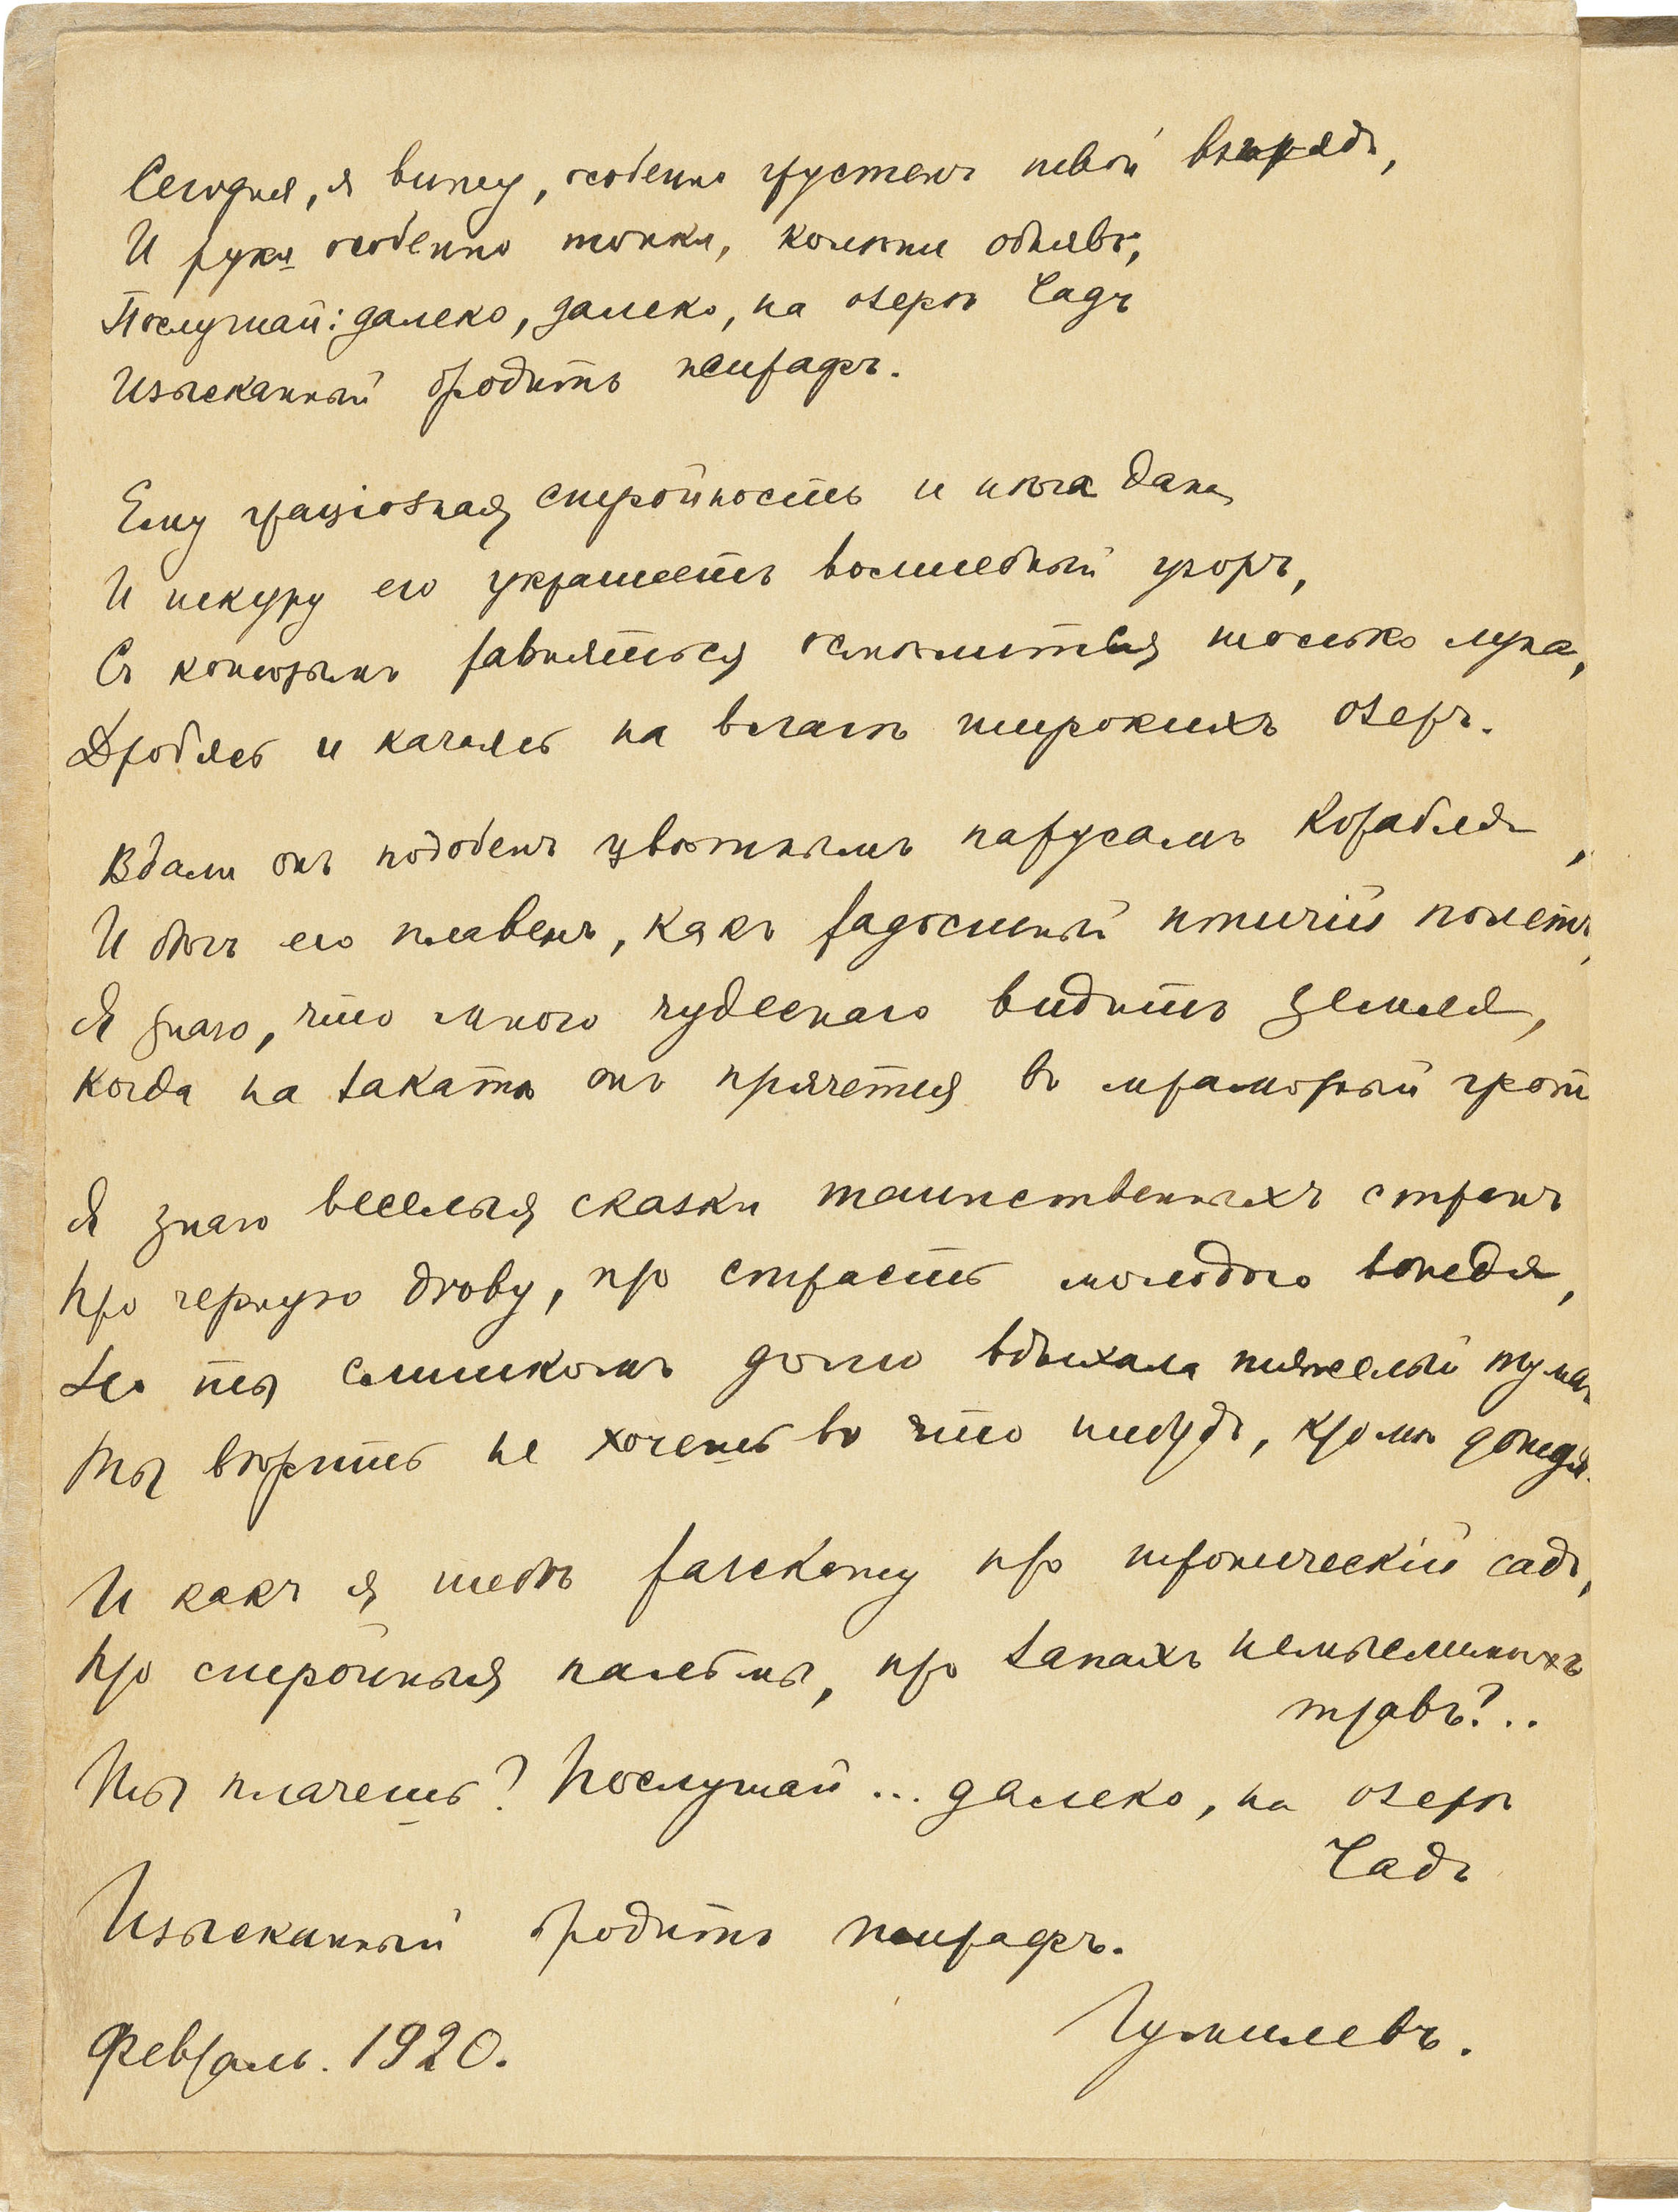 Сегодня, я вижу, особенно грустенъ твой взглядъ,
И руки особенно тонки, колѣни обнявъ,
Послушай: далеко, далеко, на озерѣ Чадъ
Изысканный бродитъ жирафъ.
Ему граціозная стройность и нѣга дана,
И шкуру его украшаетъ волшебный узоръ,
Съ которымъ равняться осмѣлится только луна,
Дробясь и качаясь на влагѣ широкихъ озеръ.
Вдали онъ подобенъ цвѣтнымъ парусамъ корабля,
И бѣгъ его плавенъ, какъ радостный птичій полетъ,
Я знаю, что много чудеснаго видитъ земля,
Когда на закатѣ онъ прячется въ мраморный грот
Я знаю веселыя сказки таинственныхъ странъ
Про черную дѣву, про страсть молодого вождя,
Но ты слишкомъ долго вдыхала тяжелый туман
Ты вѣрить не хочешь во что нибудь, кромѣ дождя.
И какъ я тебѣ разскажу про тропическій садъ,
Про стройныя пальмы, про запахъ немыслимыхъ
травъ?..
Ты плачешь? Послушай... далеко, на озерѣ
Чадъ
Изысканный бродитъ жирафъ.
Гумилевъ.
Февраль. 1920.